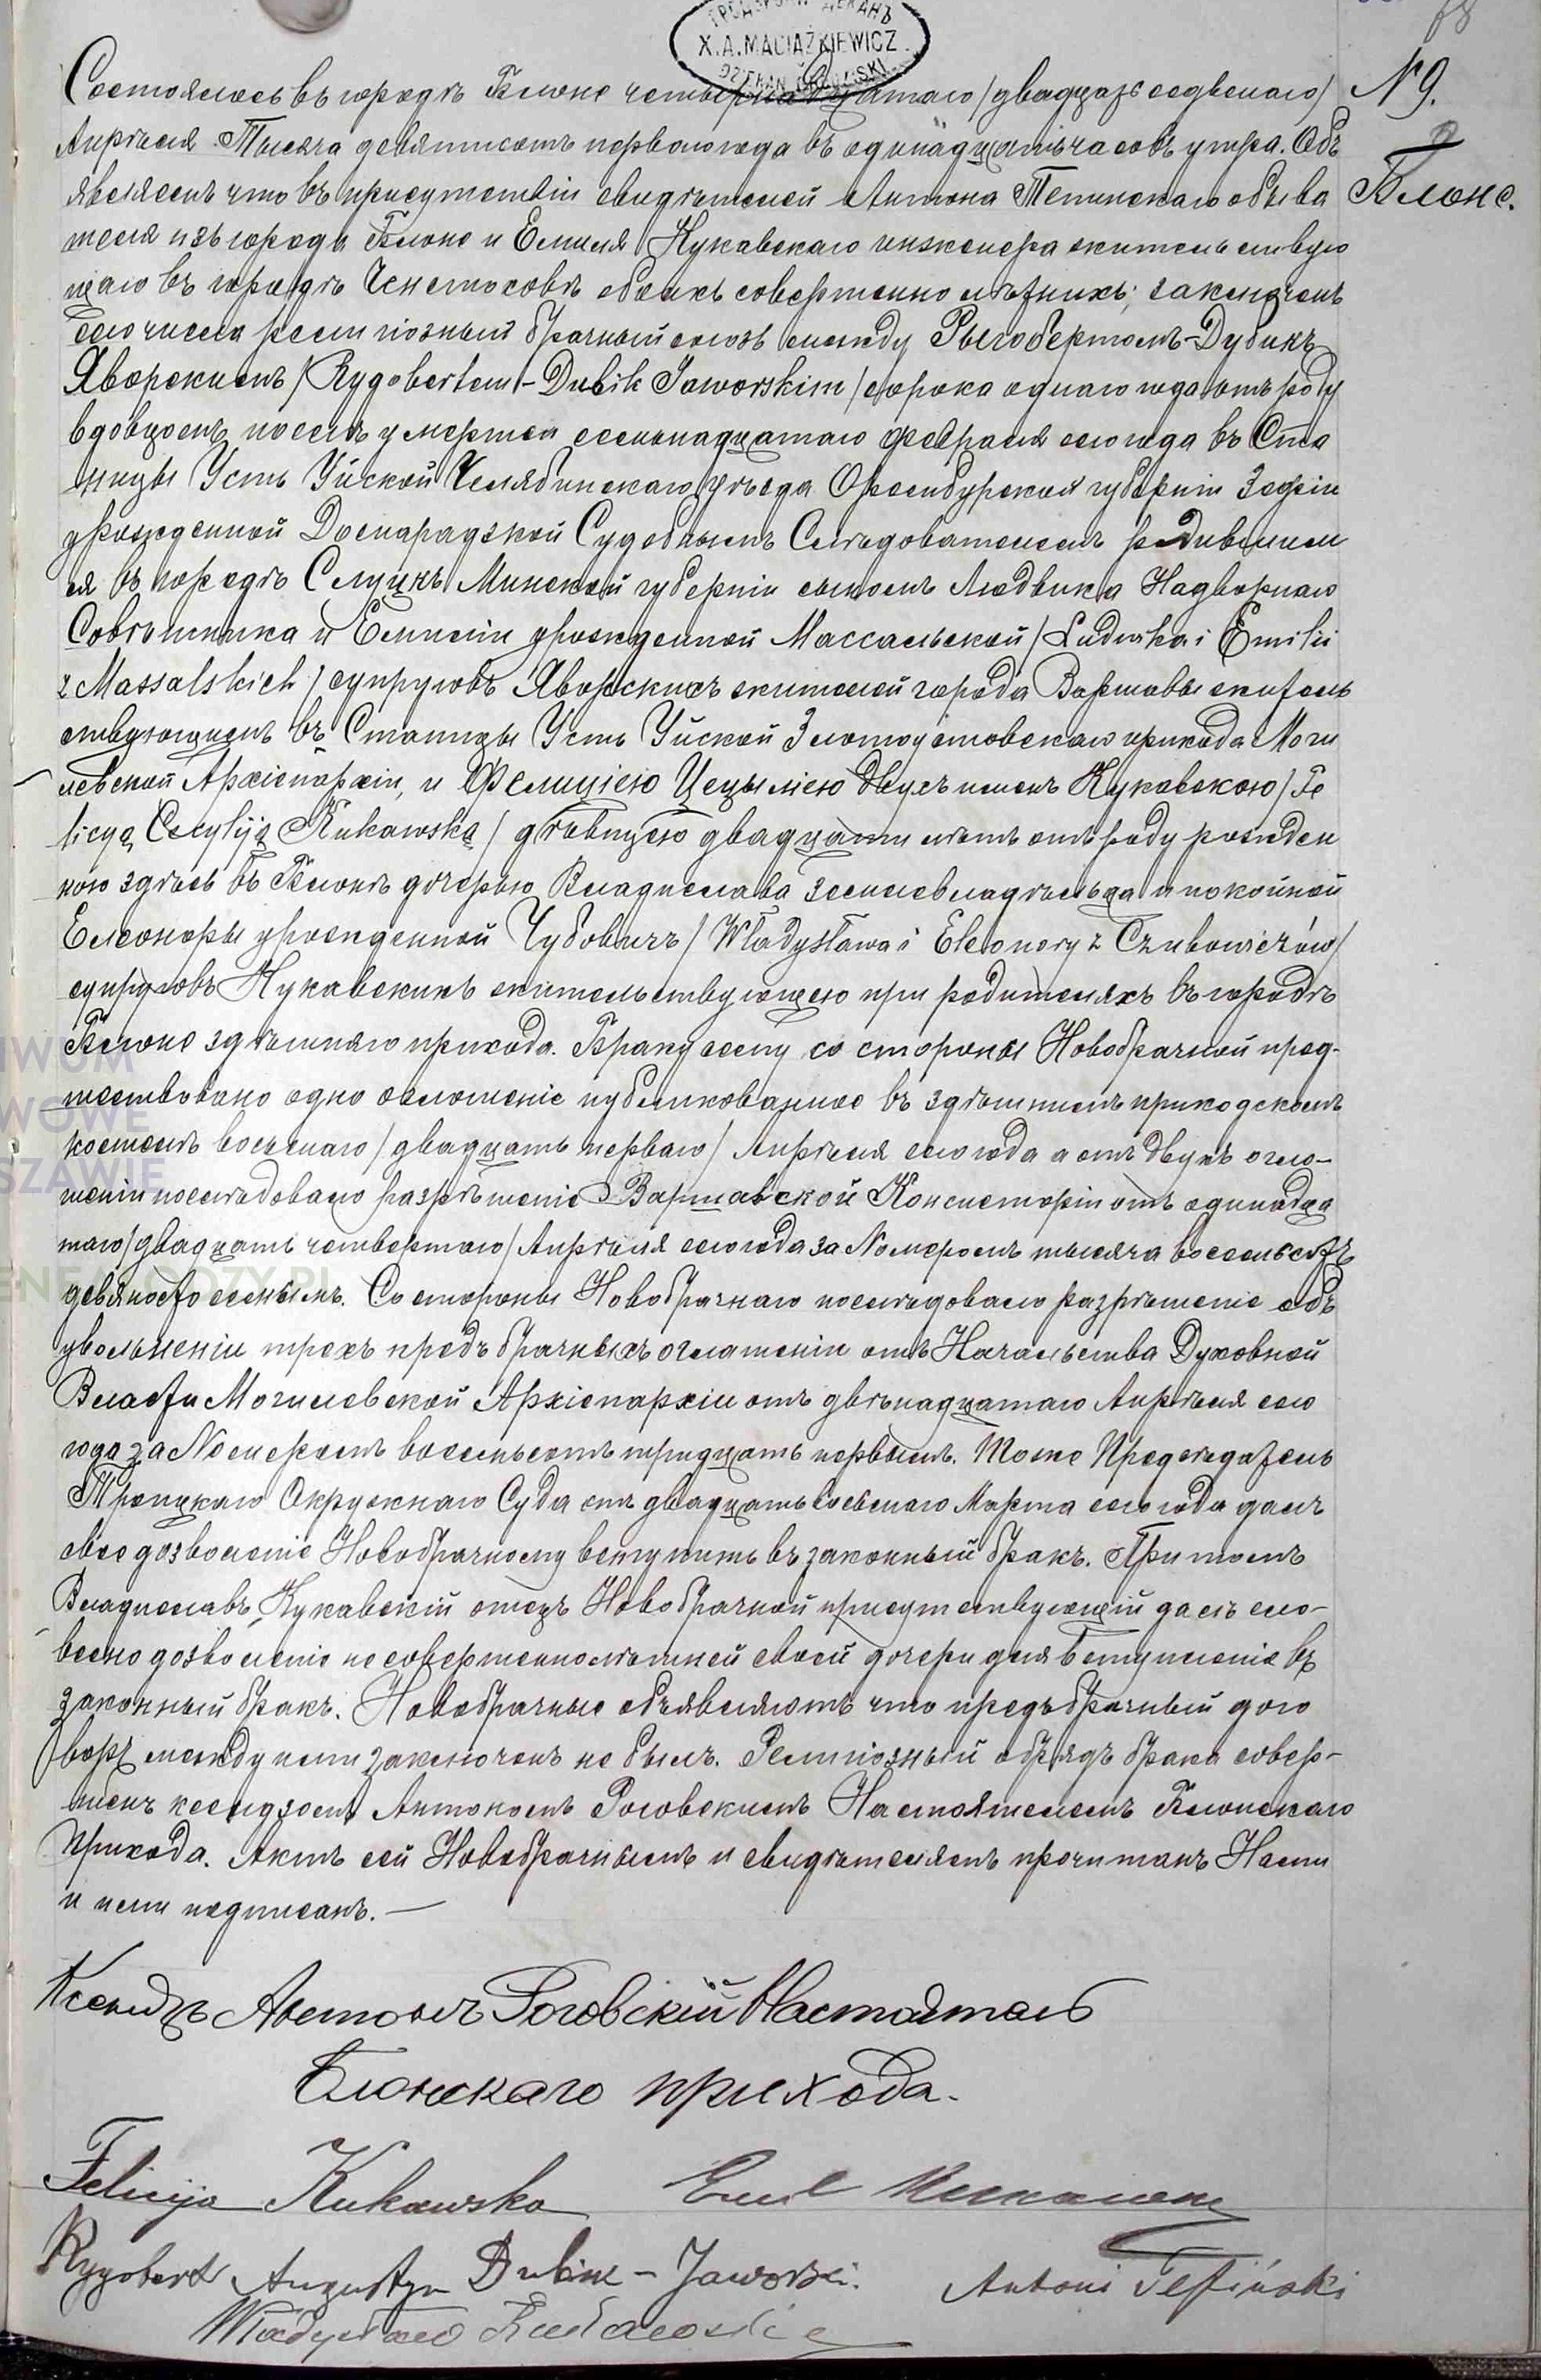 68
ДЕКАНЪ
X. A. MACIĄŻKIEWICZ
DZIEKAN
Состоялось въ городѣ Блоне четырнадцатаго /двадцать седьмаго/
N 9.
Апрѣля Тысяча девятисотъ перваго года въ одинадцать часовъ утра. Объ
Блоне.
являемъ что въ присутствіи свидѣтелей Антона Тепинскаго обыва
теля изъ города Блоне и Емиля Кукавскаго инженера жительствую
щаго въ городѣ Ченстоховѣ обоихъ совершеннолѣтнихъ; заключенъ
сего числа религіозный брачный союзъ между Рыгобертомъ-Дубикъ
Яворскимъ /Rygobertem-Dubik Jaworskim/ сорока однаго года отъ роду
вдовцомъ послѣ умершей семьнадцатаго Февраля сего года въ Ста
ницы Усть Уйской Челябинскаго уѣзда Оренбургской губерніи Зофіи
урожденной Судебнымъ Слѣдователемъ родившим
ся въ городѣ Слуцкъ Минской губерніи сыномъ Людвика Надворнаго
Совѣтника и Емиліи урожденной Массальской /Ludwika i Emilii
z Massalskich/ супруговъ Яворскихъ жителей города Варшавы житель
ствующимъ въ Станицы Усть Уйской Златоустовскаго прихода Моги
левской Архіепархіи, и Фелиціею Цецыліею двухъ именъ Кукавскою /Fe
licyą Cecyliją Kukawską/ дѣвицею двадцати лѣтъ отъ роду рожден
ною здѣсь въ Блонѣ дочерью Владислава землевладѣльца и покойной
Елеоноры урожденной Чубовичъ /Władysława i Eleonory z Czubowiczów/
супруговъ Кукавскихъ жительствующею при родителяхъ въ городѣ
Блоне здѣшняго прихода. Браку сему со стороны Новобрачной пред-
шествовано одно оглошеніе публикованное въ здѣшнемъ приходскомъ
костелѣ восьмаго /двадцать перваго/ Апрѣля сего года а отъ двухъ огло-
шеніи последовало разрѣшеніе Варшавской Консисторіи отъ одинадца
таго /двадцать четвертаго/ Апрѣля сего года за Номеромъ тысяча восемьсотъ
девяносто семымъ. Со стороны Новобрачнаго последовало разрѣшеніе объ
увольненіи трехъ предъ брачныхъ оглашеніи отъ Начальства Духовной
Власти Могилевской Архіепархіи отъ двѣнадцатаго Апрѣля сего
года за Номеромъ восемьсотъ тридцать первымъ. Тоже Предсѣдатель
Троицкаго Окружнаго Суда отъ двадцать Марта сего года далъ
свое дозволеніе Новобрачному вступить въ законный бракъ. При томъ
Владиславъ Кукавскій отецъ Новобрачной присутствующій далъ сло-
весно дозволеніе несовершеннолѣтней своей дочери для вступленіе въ
законный бракъ. Новобрачные объявляютъ что предъбрачный дого
воръ между ними заключенъ не былъ. Религіозный обрядъ брака совер-
шенъ ксендзомъ Антономъ Роговскимъ Настоятелемъ Блонскаго
Прихода. Актъ сей Новобрачнымъ и свидѣтелямъ прочитанъ Нами
и ними подписанъ.—
Ксендзъ Антонъ Роговскій Настоятель
Блонскаго прихода.
Felicyja Kukawska Emil Kukawski
Rygobert Augustyn Dubik-Jaworski. Antoni Tepiński
Władysław Kukawski